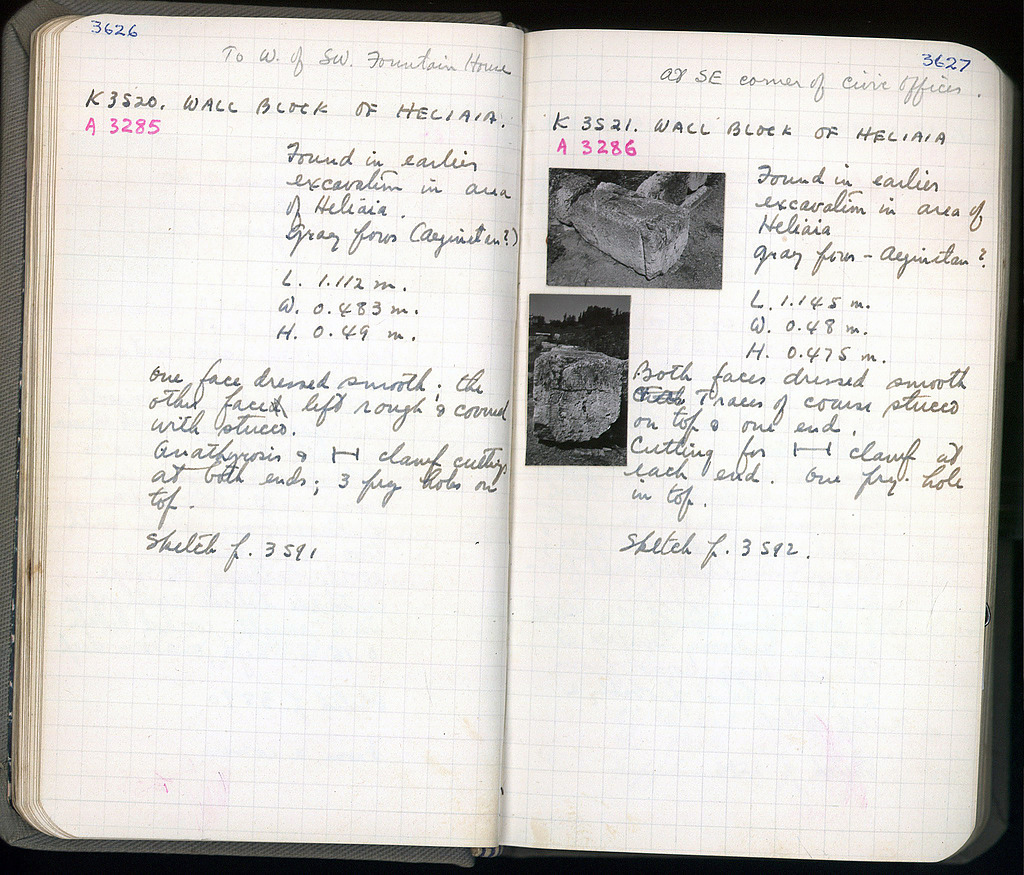 3626
To W. of SW. Fountain House
K 3520. WALL BLOCK OF HELIAIA.
A 3285
Found in earlier
excavation in area
of Heliaia.
Gray poros (Aeginetan?)
L. 1.112 m.
W. 0.483 m.
H. 0.49 m.
One face dressed smooth; the
other face left rough & covered
with stucco.
Anathyrosis & H clamp cuttings
at both ends; 3 pry holes on
top.
Sketch p. 3591
3627
at SE corner of Civic Offices.
K 3521. WALL BLOCK OF HELIAIA
A 3286
Found in earlier
excavation in area of
Heliaia
gray poros - Aeginetan?
L. 1.145 m.
W. 0.48 m.
H. 0.475 m.
Both faces dressed smooth
Traces of coarse stucco
on top & one end.
Cutting for H clamp at
each end. One pry hole
in top.
Sketch p. 3592.